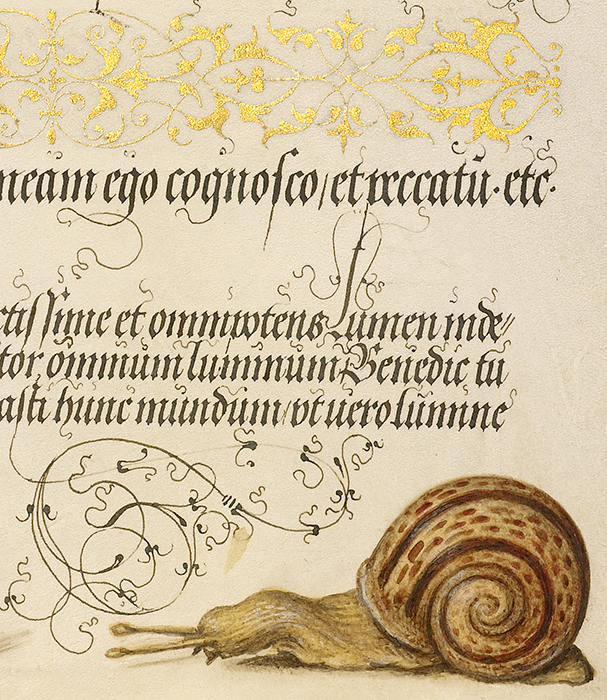 neam ego cognoſco/et peccatū· etc·
ctiſſime et omnipotens Lumen inde//
tor, omnium luminum Benedic tu
aſti hunc mundum/vt uero lumine